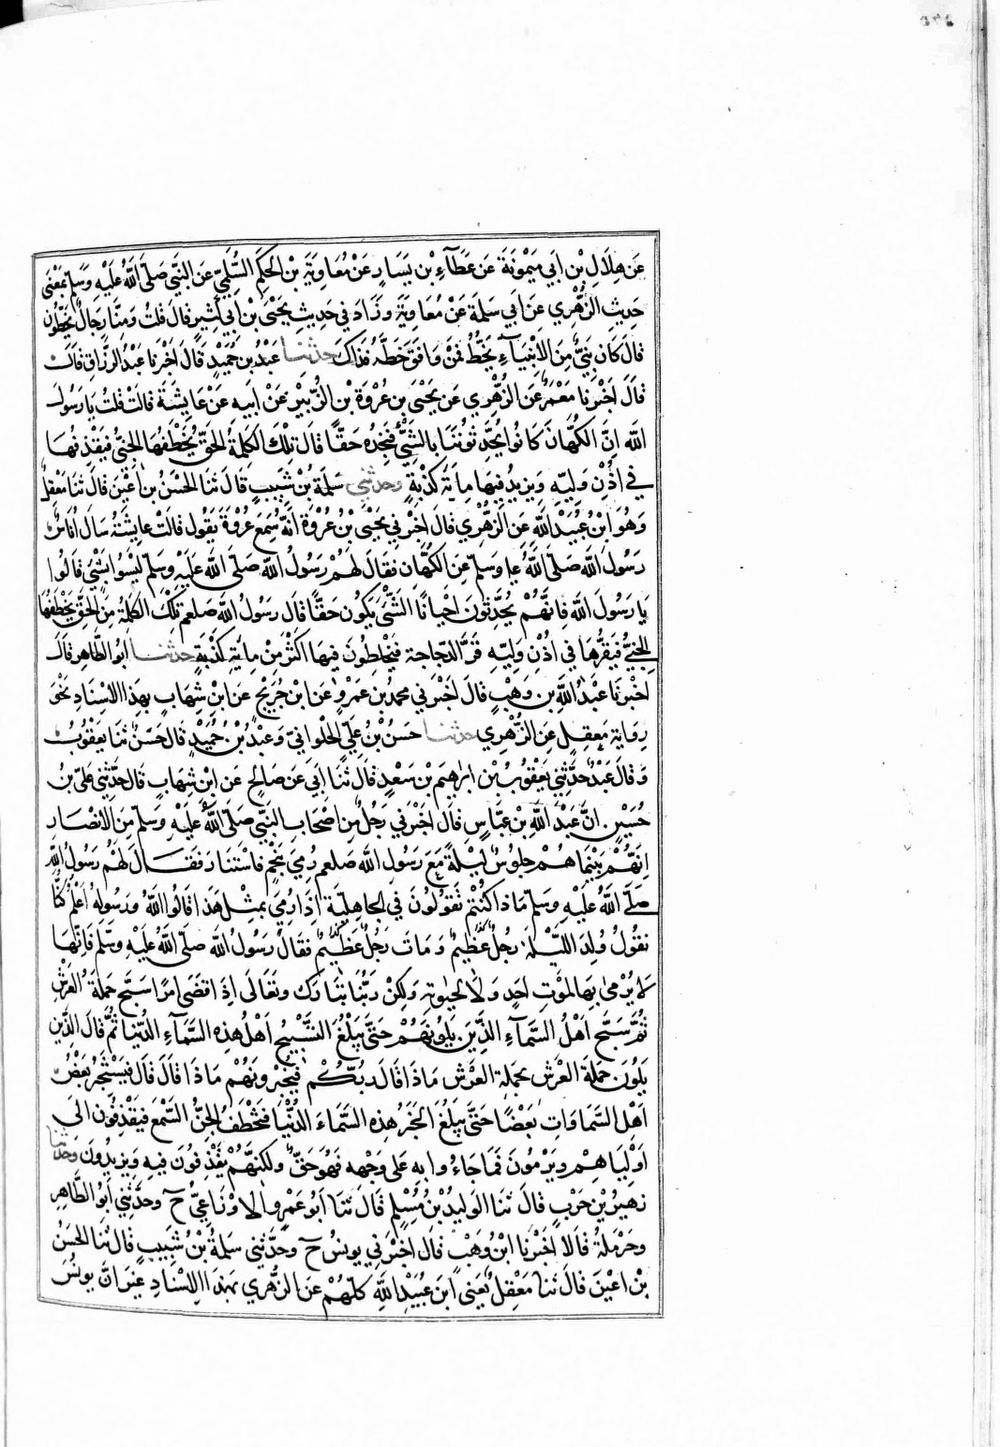 عَن هِلَالِ بْنِ اَبِي مَيْمُونَةَ عَن عَطَآءِ بْنِ يَسَارٍ عَنْ مُعَاوِيَةَ بْنِ الحَكَمِ السُّلَمِيّ عَنِ النَّبِيِّ صَلَّى اللَّهُ عَلَيْهِ وَسَلَّمَ بِمَعْنٰى
حَدِيثِ الزُّهْرِي عَن اَبِي سَلَمَةَ عَنْ مُعَاوِيَةَ وَزَادَ فِي حَدِيثِ يَحْيَى بْنِ اَبِي كَثِيرٍ قَالَ قُلتُ وَمِنَّا رِجَالٌ يَخُطُّونَ
قَالَ كَانَ نَبِيٌّ مِنَ الاَنْبِيَآءِ يَخُطُّ فَمَنْ وَافَقَ خَطَّهُ فَذَاكَ حدثنا عَبْدُ بْنُ حُمَيْدٍ قَالَ اَخْبَرَنا عَبْدُ الرَّزَّاقِ قَالَ
قَالَ اَخْبَرَنَا مَعْمَرٌ عَن الزُّهْرِي عَن يَحْيَى بْنِ عُرْوَةَ بْنِ الزُّبَيْرِ عَنْ اَبِيهِ عَنْ عَايِشَةَ قَالَتْ قُلْتُ يَا رَسُولَ
اللّٰه اِنَّ الكُهَّانَ كَانُوا يُحَدِّثُونَنَا بِالشَّيْءِ فَنَجِدُهُ حَقًّا قَالَ تِلْكَ الكَلِمَةُ الحَقُّ يَخْطَفُهَا الجِنِّيُّ فَيَقْذِفُهَا
فِي اُذُنِ وَلِيِّهِ وَيَزِيدُ فِيهَا مِايَةَ كَذْبَةٍ وحدثني سَلَمَةُ بْنُ شَبِيبٍ قَالَ ثَنَا الحَسَنُ بْنُ اَعْيَنَ قَالَ ثَنَا مَعْقِلٌ
وَهُوَ ابْنُ عُبَيْدِ اللَّهِ عَنِ الزُّهْرِي قَالَ اَخْبَرَنِي يَحْيَى بْنُ عُرْوَةَ اَنَّهُ سَمِعَ عُرْوَةَ يَقُولُ قَالَتْ عَايِشَةُ سَالَ اُنَاسٌ
رَسُولَ اللَّه صَلَّى اللَّهُ عليه وسَلَّمَ عَنِ الكُهَّانِ فَقَالَ لَهُمْ رَسُولُ اللَّه صَلَّى اللَّه عَلَيْهِ وَسَلَّمَ لَيْسُوا بِشَيْءٍ قَالُوا
يَا رَسُولَ اللَّه فَاِنَّهُمْ يُحَدِّثُونَ اَحْيَانًا الشَّيْءَ يَكُونُ حَقًّا قَالَ رَسُولُ اللَّه صلعم تِلْكَ الكَلِمَةُ مِنَ الحَقِّ يَخْطَفُهَا
الجِنِّيُّ فَيَقُرُّهَا فِي اُذُنِ وَلِيِّهِ قَرَّ الدجاجة فَيَخْلِطُونَ فِيهَا اَكْثَرَ مِنْ مِايَةِ كَذْبَةٍ حدثنا اَبُو الطَّاهِرِ قَالَ
اَخْبَرَنَا عَبْدُ اللَّهِ بْن وَهْبٍ قَالَ اَخْبَرَنِي مُحمدُ بْن عَمْرٍو عَنِ ابْنِ جُرَيْجٍ عَنِ ابْنِ شِهَابٍ بِهَذَا الاِسْنَادِ نَحْوَ
رِوَايَةِ مَعْقِلٍ عَنِ الزُّهْرِي حدثنا حَسَنُ بْنُ عَلِيٍّ الحُلْوانِيّ وَعَبْدُ بْنُ حُمَيْدٍ قَالَ حَسَنٌ ثَنَا يَعْقُوبُ
وَقَالَ عَبْدٌ حَدَّثَنِي يَعْقُوبُ بْنُ ابرهِيمَ بْنِ سَعْدٍ قَالَ ثَنَا اَبِي عَن صَالِحٍ عَنِ ابْنِ شِهَابٍ قَالَ حَدَّثَنِي عَلِيُّ بْنُ
حُسَيْنٍ اَنَّ عَبْدَ اللَّهِ بْنَ عَبَّاسٍ قَالَ اَخْبَرَنِي رَجُلٌ مِن اَصْحَابِ النَّبِيِّ صَلَّى اللَّهُ عَلَيْهِ وَسَلَّمَ مِنَ الاَنْصَارِ
اَنَّهُمْ بَيْنَمَا هُمْ جُلُوسٌ لَيْلَةً مَعَ رَسُولِ اللَّه صلعم رُمِيَ بِنَجْمٍ فَاسْتَنَارَ فَقَالَ لَهُمْ رَسُولُ اللَّهِ
صَلَّى اللَّهُ عَلَيْهِ وَسَلَّمَ مَاذَا كُنْتُمْ تَقُولُونَ فِي الجاهِلِيَّةِ اِذَا رُمِيَ بِمِثْلِ هَذَا قَالُوا اللَّهُ وَرَسُولُهُ اَعْلَمُ كُنَّا
نَقُولُ وُلِدَ اللَّيْلَةَ رَجُلٌ عَظِيمٌ وَمَاتَ رَجُلٌ عَظِيمٌ فَقَالَ رَسُولُ اللَّه صَلَّى اللَّهُ عَلَيْهِ وَسَلَّمَ فَاِنَّهَا
لَا يُرْمَى بِهَا لِمَوْتِ اَحَدٍ وَلَا لِحَيٰوتِهِ وَلَكِنْ رَبُّنَا تَبَارَكَ وتَعَالَى اِذَا قَضَى اَمْرًا سَبَّحَ حَمَلَةُ العَرْشِ
ثُمَّ سَبَّحَ اَهْلُ السَّمَآءِ الَّذِينَ يَلُونَهُمْ حَتَّى يَبْلُغَ التَّسْبِيحُ اَهْلَ هَذِهِ السَّمَآءِ الدُّنْيَا ثُمَّ قَالَ الَّذِينَ
يَلُونَ حَمَلَةَ العَرْشِ لحَمَلَةِ العَرْشِ مَاذَا قَالَ رَبُّكُمْ فَيُخْبِرُونَهُمْ مَاذَا قَالَ قَالَ فَيَسْتَخْبِرُ بَعْضُ
اَهْلِ السَّمَاوَاتِ بَعْضًا حَتَّى يَبْلُغَ الخَبَرُ هَذِهِ السَّمَاءَ الدُّنْيَا فَتَخْطَفُ الجِنُّ السَّمْعَ فَيَقْذِفُونَ اِلَى
اَوْلِيَاهِمْ وَيَرْمُونَ فَمَا جَاءُوا بِهِ عَلَى وَجْهِهِ فَهُوَ حَقٌّ وَلَكِنَّهُمْ يَقْذِفُونَ فِيهِ وَيَزِيدُونَ وحدثنا
زُهَيْرُ بْنُ حَرْبٍ قَالَ ثَنَا الوَلِيدُ بْنُ مُسْلِمٍ قَالَ ثَنَا اَبُو عَمْرٍو الاَوْزَاعِيُّ ح وحَدَّثَنِي اَبُو الطَّاهِرِ
وحَرْمَلَةُ قَالَا اَخْبَرَنَا ابْنُ وَهْبٍ قَالَ اَخْبَرَنِي يُونُسُ ح وحَدَّثَنِي سَلَمَةُ بْنُ شَبِيبٍ قَالَ ثَنَا الحَسَنُ
بْنُ اَعْيَنَ قَالَ ثَنَا مَعْقِلٌ يَعْنِي ابْنَ عُبَيْدِ اللَّهِ كُلُّهُمْ عَنِ الزُّهْرِي بِهَذَا الاِسْنَادِ غَيْرَ اَنَّ يونُسَ